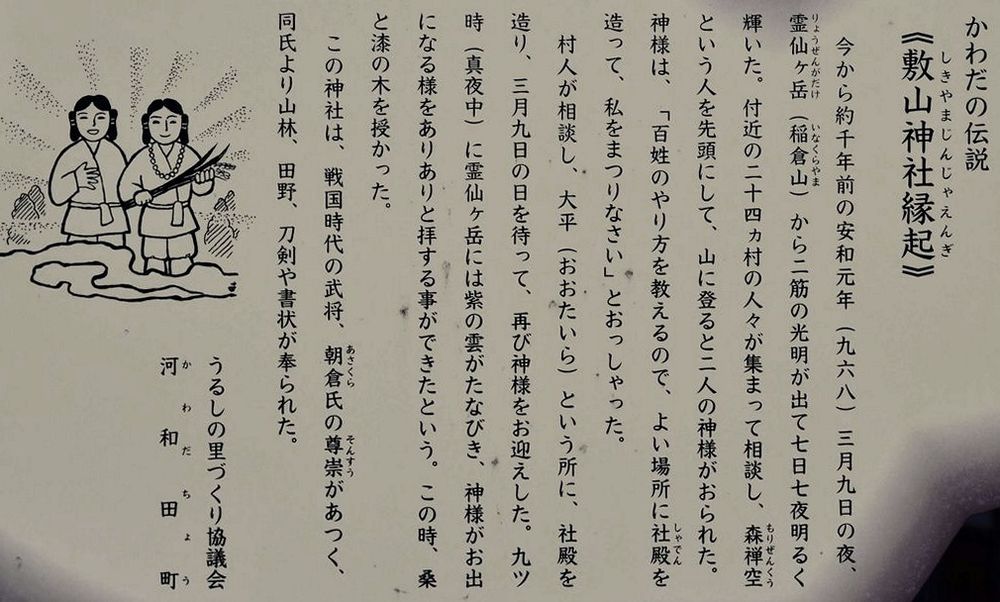 かわだの伝説
《敷山神社縁起》
しきやまじんじゃえんぎ
今から約千年前の安和元年（九六八）三月九日の夜、
霊仙ヶ岳（稲倉山）から二筋の光明が出て七日七夜明るく
りょうぜんがだけ
いなくらやま
輝いた。付近の二十四ヵ村の人々が集まって相談し、森禅空
もりぜんくう
という人を先頭にして、山に登ると二人の神様がおられた。
神様は、「百姓のやり方を教えるので、よい場所に社殿を
しゃでん
造って、私をまつりなさい」とおっしゃった。
村人が相談し、大平（おおたいら）という所に、社殿を
造り、三月九日の日を待って、再び神様をお迎えした。九ツ
時（真夜中）に霊仙ヶ岳には紫の雲がたなびき、神様がお出
になる様をありありと拝する事ができたという。この時、桑
と漆の木を授かった。
この神社は、戦国時代の武将、朝倉氏の尊崇があつく、
あさくら
そんすう
同氏より山林、田野、刀剣や書状が奉られた。
うるしの里づくり協議会
河和田町
かわだちょう